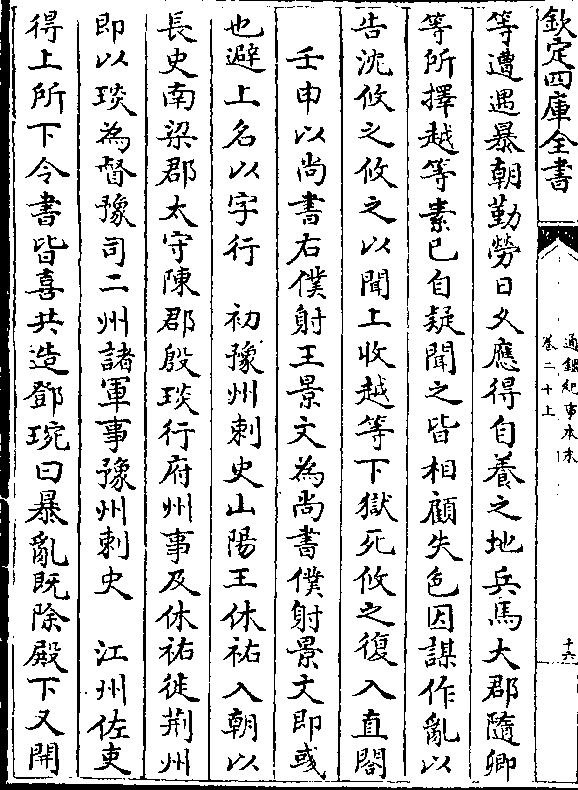 欽定四庫全書
通鑑紀事本末
卷二十上
十六
等遭遇暴朝勤勞日久應得自養之地兵馬大郡隨卿
等所擇越等素已自疑聞之皆相顧失色因謀作亂以
告沈攸之攸之以聞上收越等下獄死攸之復入直閤
壬申以尚書右僕射王景文為尚書僕射景文即彧
也避上名以字行　初豫州刺史山陽王休祐入朝以
長史南梁郡太守陳郡殷琰行府州事及休祐徙荆州
即以琰為督豫司二州諸軍事豫州刺史　江州佐吏
得上所下令書皆喜共造鄧琬曰暴亂既除殿下又開